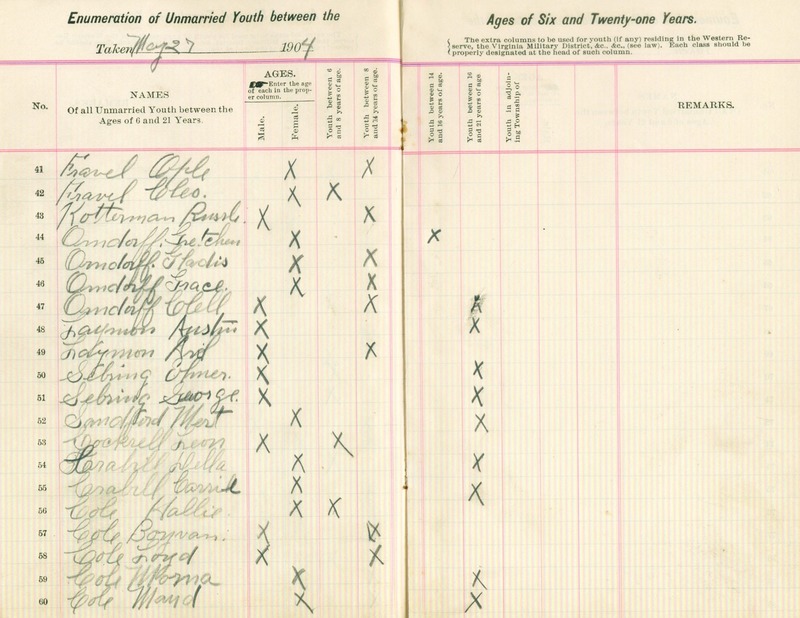 Enumeration of Unmarried Youth between the Ages of Six and Twenty-one Years.
Taken May 27 1904
The extra columns to be used for youth (if any) residing in the Western Re-
serve, the Virginia Military District, &c., &c., (see law). Each class should be
properly designated at the head of such column.
No.
NAMES
Of all Unmarried Youth between the
Ages of 6 and 21 Years.
AGES.
Enter the age
of each in the prop-
er column.
Male.
Female.
Youth between 6
and 8 years of age.
Youth between 8
and 14 years of age.
Youth between 14
and 16 years of age.
Youth between 16
and 21 years of age
Youth in adjoin-
ing Township of
REMARKS.
41 Travel Ople X X
42 Travel Cleo. X X
43 Kotterman Russle. X X
44 Orndorff. Gretchen X X
45 Orndorff. Gladis X X
46 Orndorff Grace. X X
47 Orndorff Clell X X X
48 Laymon Austin X X
49 Laymon Arid X X
50 Sebring Omer. X X
51 Sebring George. X X
52 Sandford Mert X X
53 Cockrell Leon X X
54 Crabill Della X X
55 Crabill Carrie X X
56 Cole Hallie. X X
57 Cole X X
58 Cole Loyd X X
59 Cole X X
60 Cole Maud X X